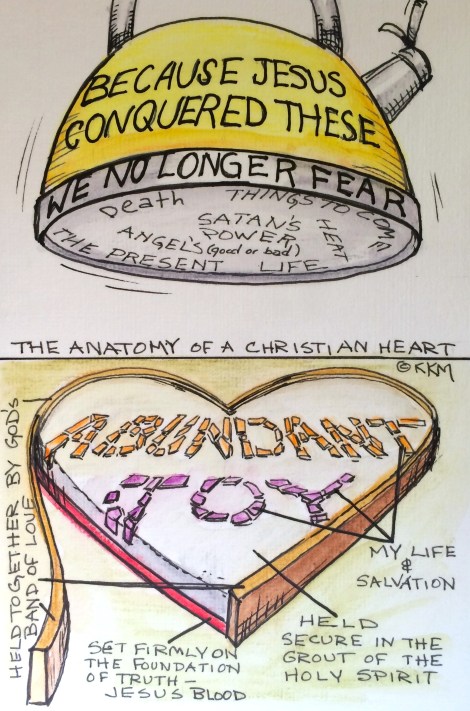 BECAUSE JESUS
CONQUERED THESE
WE NO LONGER FEAR
Death THINGS TO COME
SATAN'S
POWER
HEAT
ANGELS (good or bad)
THE PRESENT LIFE
THE ANATOMY OF A CHRISTIAN HEART
©KKM
ABUNDANT
JOY
HELD TOGETHER BY GOD'S
BAND OF LOVE
MY LIFE
&
SALVATION
HELD
SECURE IN THE
GROUT OF THE
HOLY SPIRIT
SET FIRMLY ON
THE FOUNDATION
OF TRUTH –
JESUS BLOOD